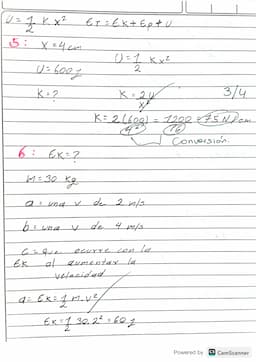 U = 1/2 K x²   ET = EK + Ep + U
5: X = 4 cm
U = 1/2 K x²
U = 600 J
K = ?
K = 2U / x²
3/4
K = 2(600) / 4² = 1200 / 16 = 75 N/cm
Conversión.
6: EK = ?
M = 30 Kg
a: una v de 2 m/s
b: una v de 4 m/s
C = Que ocurre con la
EK al aumentar la
velocidad
a = EK = 1/2 m.v²
EK = 1/2 30.2² = 60 J
Powered by CS CamScanner